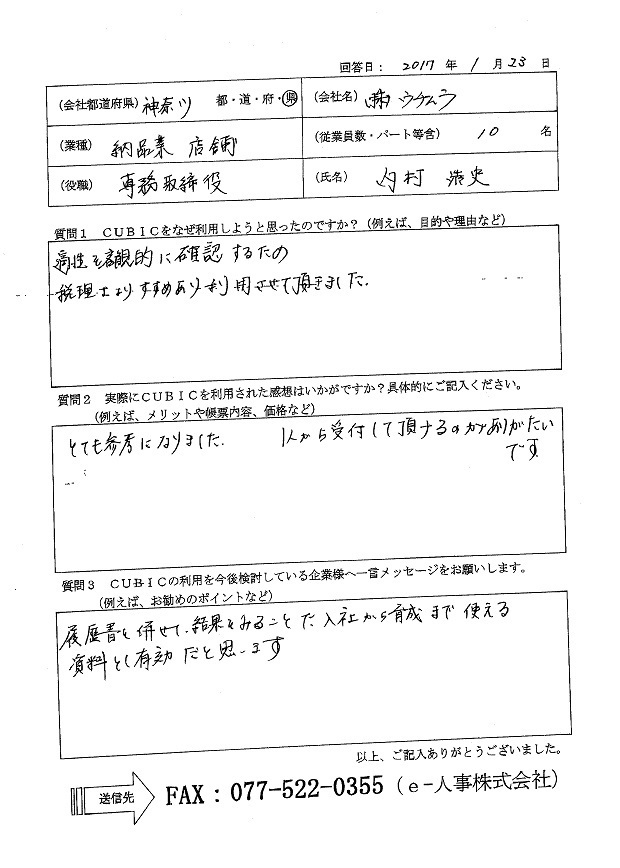 回答日: 2017 年 1 月 23 日
(会社都道府県) 神奈川 都・道・府・県 (会社名) ㈱ウチムラ
(業種) 納品業 店舗 (従業員数・パート等含) 10 名
(役職) 専務取締役 (氏名) 内村 浩史
質問1 CUBICをなぜ利用しようと思ったのですか?(例えば、目的や理由など)
適性を客観的に確認するため
税理士よりすすめあり利用させて頂きました.
質問2 実際にCUBICを利用された感想はいかがですか?具体的にご記入ください。
(例えば、メリットや帳票内容、価格など)
とても参考になりました. 1人から受付して頂けるのがありがたい
です
質問3 CUBICの利用を今後検討している企業様へ一言メッセージをお願いします。
(例えば、お勧めのポイントなど)
履歴書と併せて、結果をみることで、入社から育成まで使える
資料として有効だと思います
以上、ご記入ありがとうございました。
送信先 FAX:077-522-0355(e-人事株式会社)